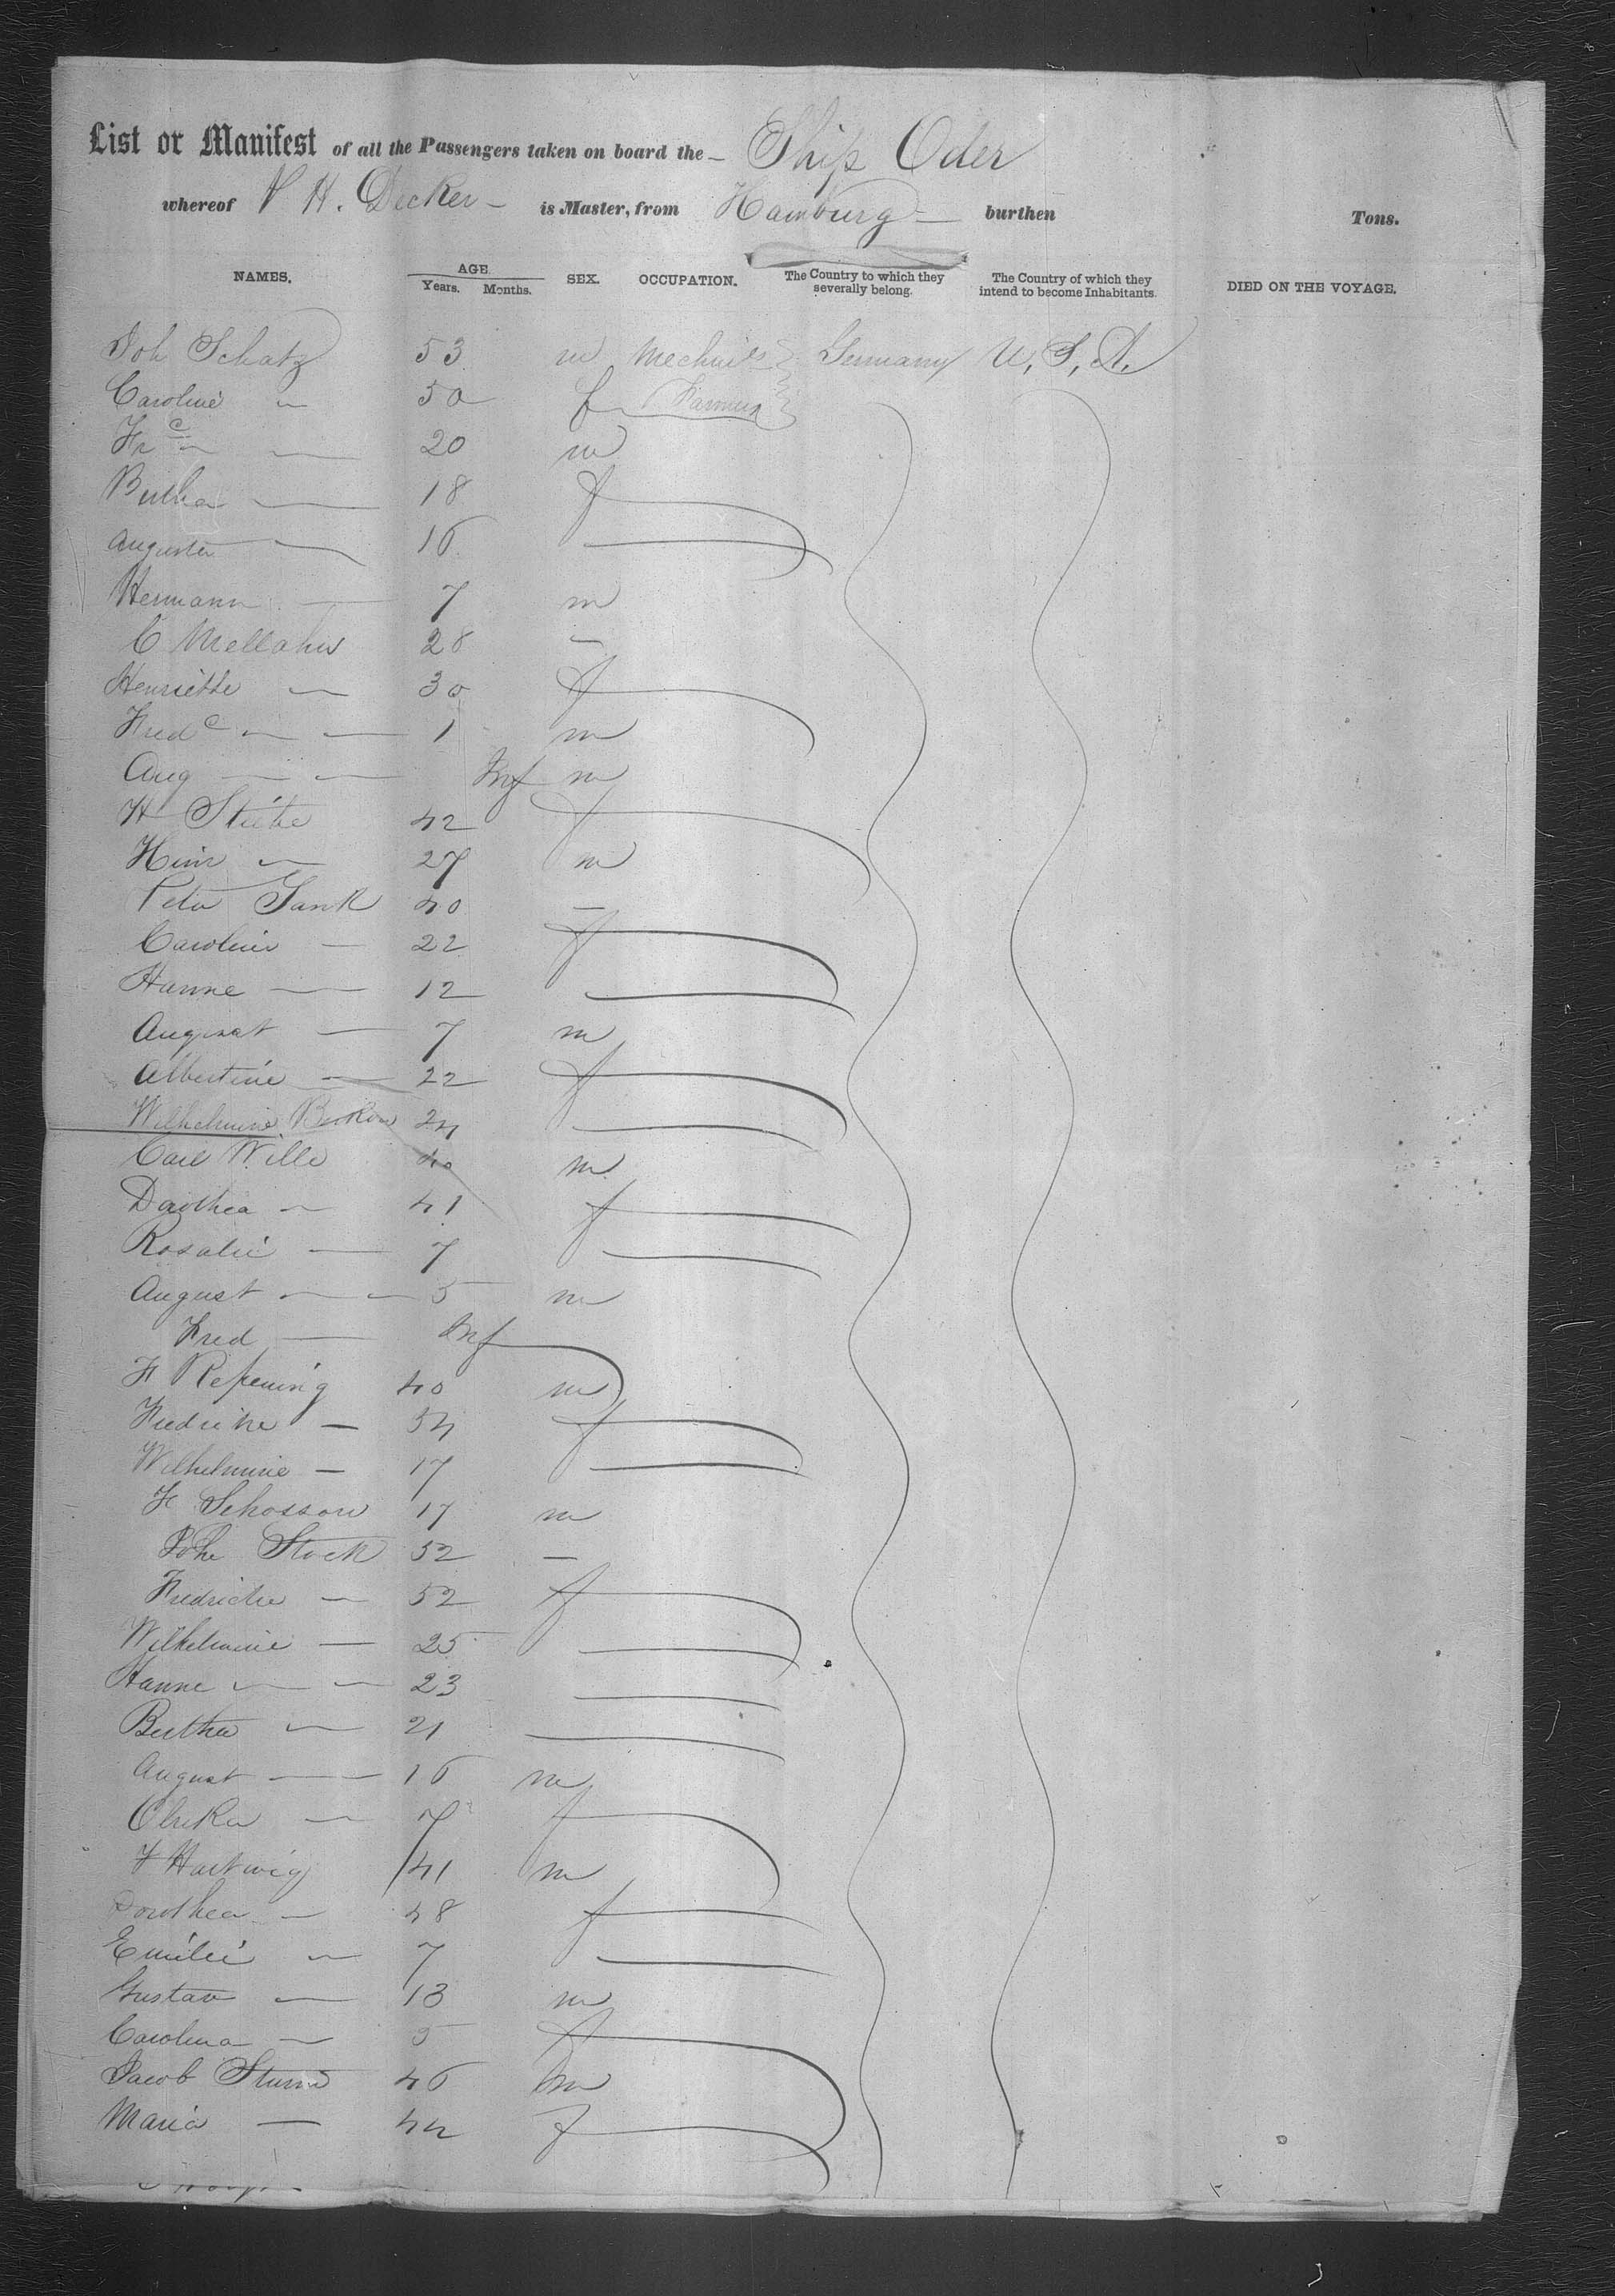 List or Manifest of all the Passengers taken on board the Ship Oder
whereof P H. Decker is Master, from Hamburg burthen Tons.
NAMES. AGE. Years. Months. SEX. OCCUPATION. The Country to which they severally belong. The Country of which they intend to become Inhabitants. DIED ON THE VOYAGE.
Joh Schatz 53 m Mechnics Germany U, S, A.
Caroline " 50 f Farmers
Frc " 20 m
Bertha 18 f
Augusta 16
Hermann 7 m
C Mellahn 28 –
Henriette 30 f
Fredc 1 m
Aug Inf m
H 42 f
Heinr 27 m
Peter Jank 40 –
Caroline 22 f
Hanne 12
August 7 m
Albertine 22 f
Wilhelmine 24
Carl Wille 40 m
Dorthea 41 f
Rosalie 7
August 5 m
Fred Inf
F Repening 40 m
Fredrike 54 f
Wilhelmine 17
F Schossow 17 m
Joh Stock 52 –
Fredricke 52 f
Wilhelmine 25
Hanne 23
Bertha 21
August 16 m
Ulrika 7 f
F Hartwig 41 m
Dorothea 48 f
Emilie 7
Gustav 13 m
Carolina 5 f
Jacob Sturm 46 m
Maria 44 f